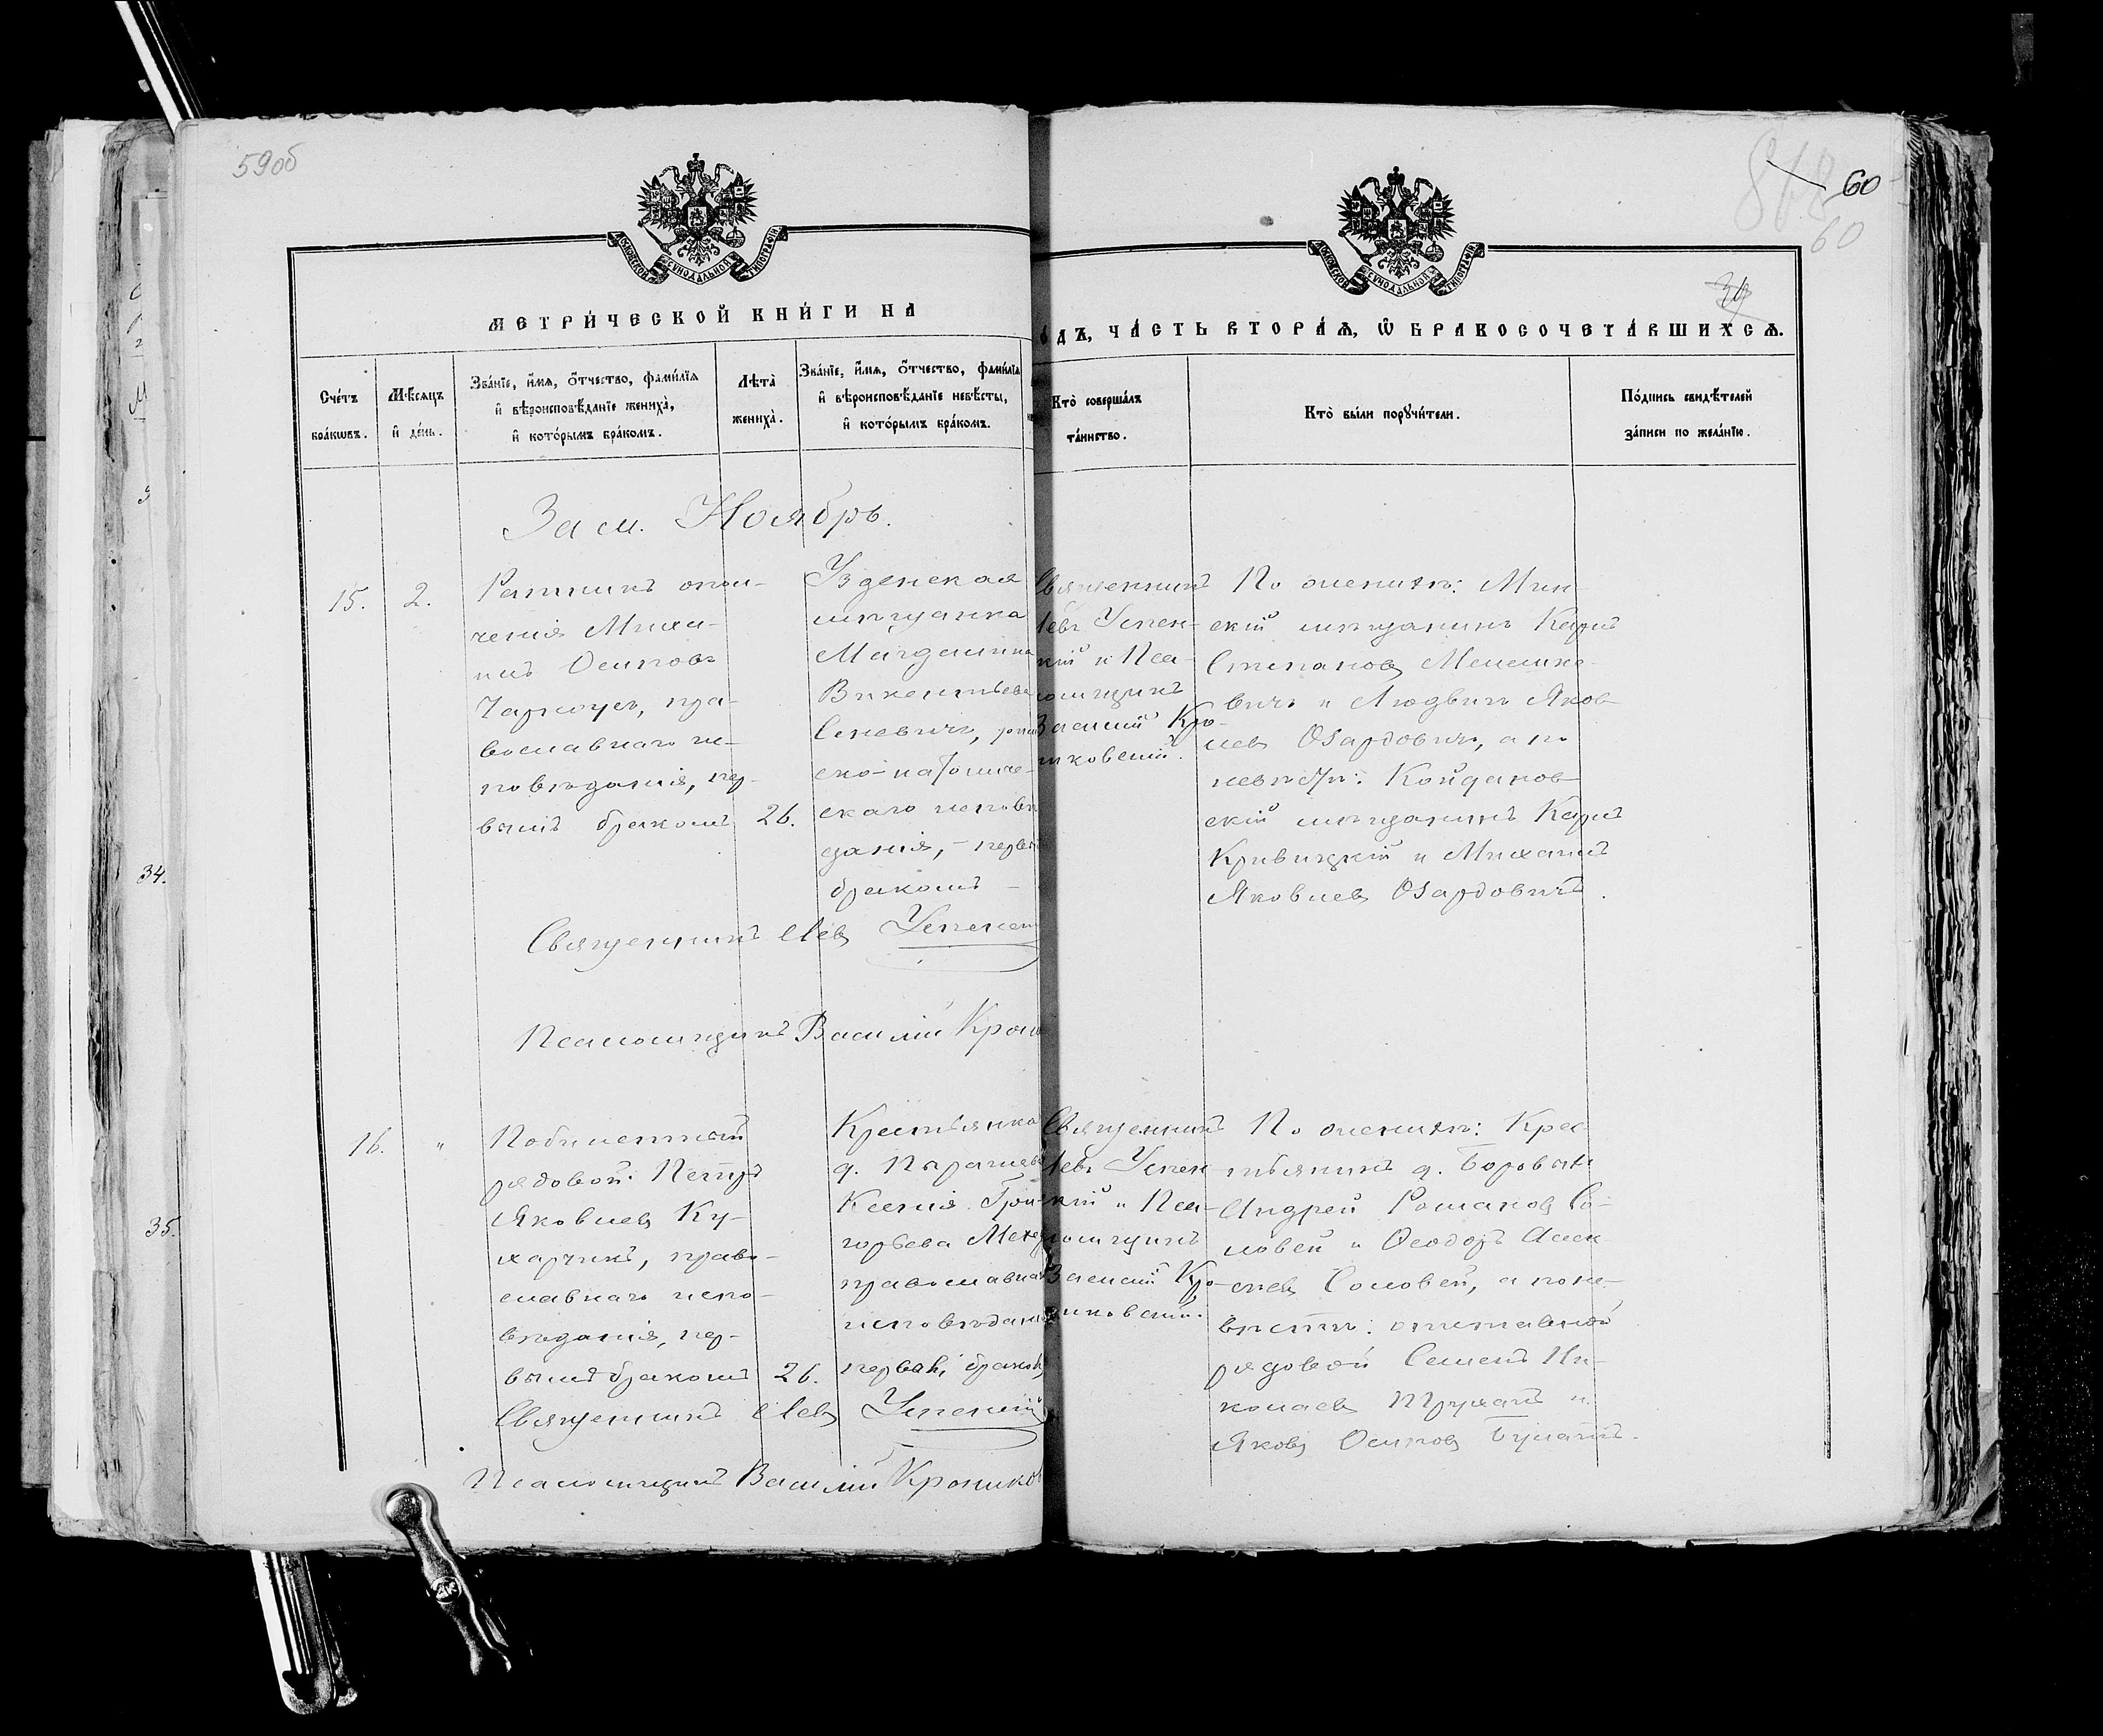 59об
60
60
МОСКОВСКОЙ СѴНОДАЛЬНОЙ ТИПОГРАФІИ
МОСКОВСКОЙ СѴНОДАЛЬНОЙ ТИПОГРАФІИ
МЕТРИ́ЧЕСКОЙ КНИ́ГИ НА
О́ДЪ, ЧА́СТЬ ВТОРА́Ѧ, Ѽ БРАКОСОЧЕТА́ВШИХСѦ.
Сче́тъ
бра́кѡвъ.
Мѣ́сѧцъ
и҆ де́нь.
Зва́нїе, и҆́мѧ, ѻ҆́тчество, фами́лїѧ
и҆ вѣроисповѣ́данїе жениха̀,
и҆ кото́рымъ бра́комъ.
Лѣта̀
жениха̀.
Зва́нїе, и҆́мѧ, ѻ҆́тчество, фами́лїѧ
и҆ вѣроисповѣ́данїе невѣ́сты,
и҆ кото́рымъ бра́комъ.
Кто̀ соверша́лъ
та́инство.
Кто̀ бы́ли порꙋчи́тели.
По́дпись свидѣ́телей
за́писи по жела́нїю.
За м. Ноябрь.
15.
2.
Ратникъ опол-
ченія Миха-
илъ Осиповъ
пра-
вославнаго ис-
повѣданія, пер-
вымъ бракомъ
26.
Узденская
мѣщанка
Магдалина
Викентьева
Сеневичъ, рим
ско-католиче-
скаго исповѣ
данія, - первы
бракомъ -
Священникъ
Левъ Успен-
кій и Пса-
ломщикъ
Василій Кро-
ковскій.
По женихѣ: Мин-
скій мѣщанинъ Карлъ
Степановъ
вичъ и Людвигъ Яков-
левъ Озардовичъ, а по
невѣстѣ: Койданов-
скій мѣщанинъ Карлъ
Кривицкій и Михаилъ
Яковлевъ Озардовичъ.
Священникъ Левъ Успенскі
Псаломщикъ Василій Крон
16.
"
рядовой Петръ
Яковлевъ Ку-
харчикъ, право-
славнаго испо-
вѣданія, пер-
вымъ бракомъ
26.
Крестьянка
д.
Ксенія Гри-
горьева
православна
исповѣдані
первымъ бракомъ
Священникъ
Левъ Успен
кій и Пса-
ломщикъ
Василій Кро-
никовскій.
По женихѣ: Крес-
тьянинъ д. Боровыхъ
Андрей Романовъ Со-
ловей и Ѳеодоръ Алек-
сѣевъ Соловей, а по не-
вѣстѣ: отставной
рядовой Семенъ Ни-
колаевъ Труханъ и
Яковъ Осиповъ
Священникъ Левъ Успенскій
Псаломщикъ Василій Крониковс
34.
35.